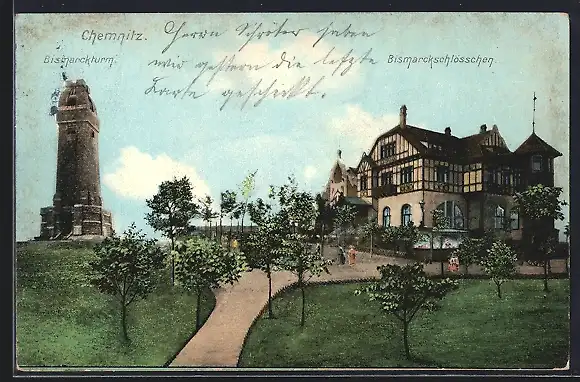 Chemnitz.
Bismarckturm.
Bismarckschlösschen
Herrn Schröter haben
wir gestern die letzte
Karte geschickt.